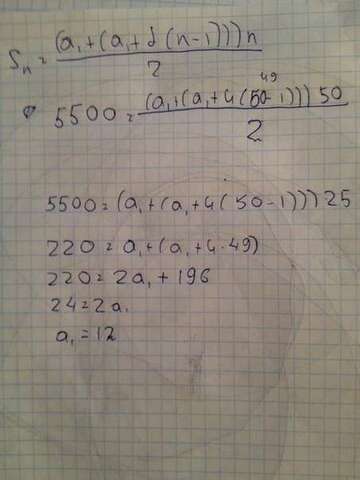 Sₙ = (a₁+(a₁+d(n-1)))n / 2
5500 = (a₁+(a₁+4(50-1)))50 / 2
49
5500 = (a₁+(a₁+4(50-1)))25
220 = a₁+(a₁+4·49)
220 = 2a₁ + 196
24=2a₁
a₁=12